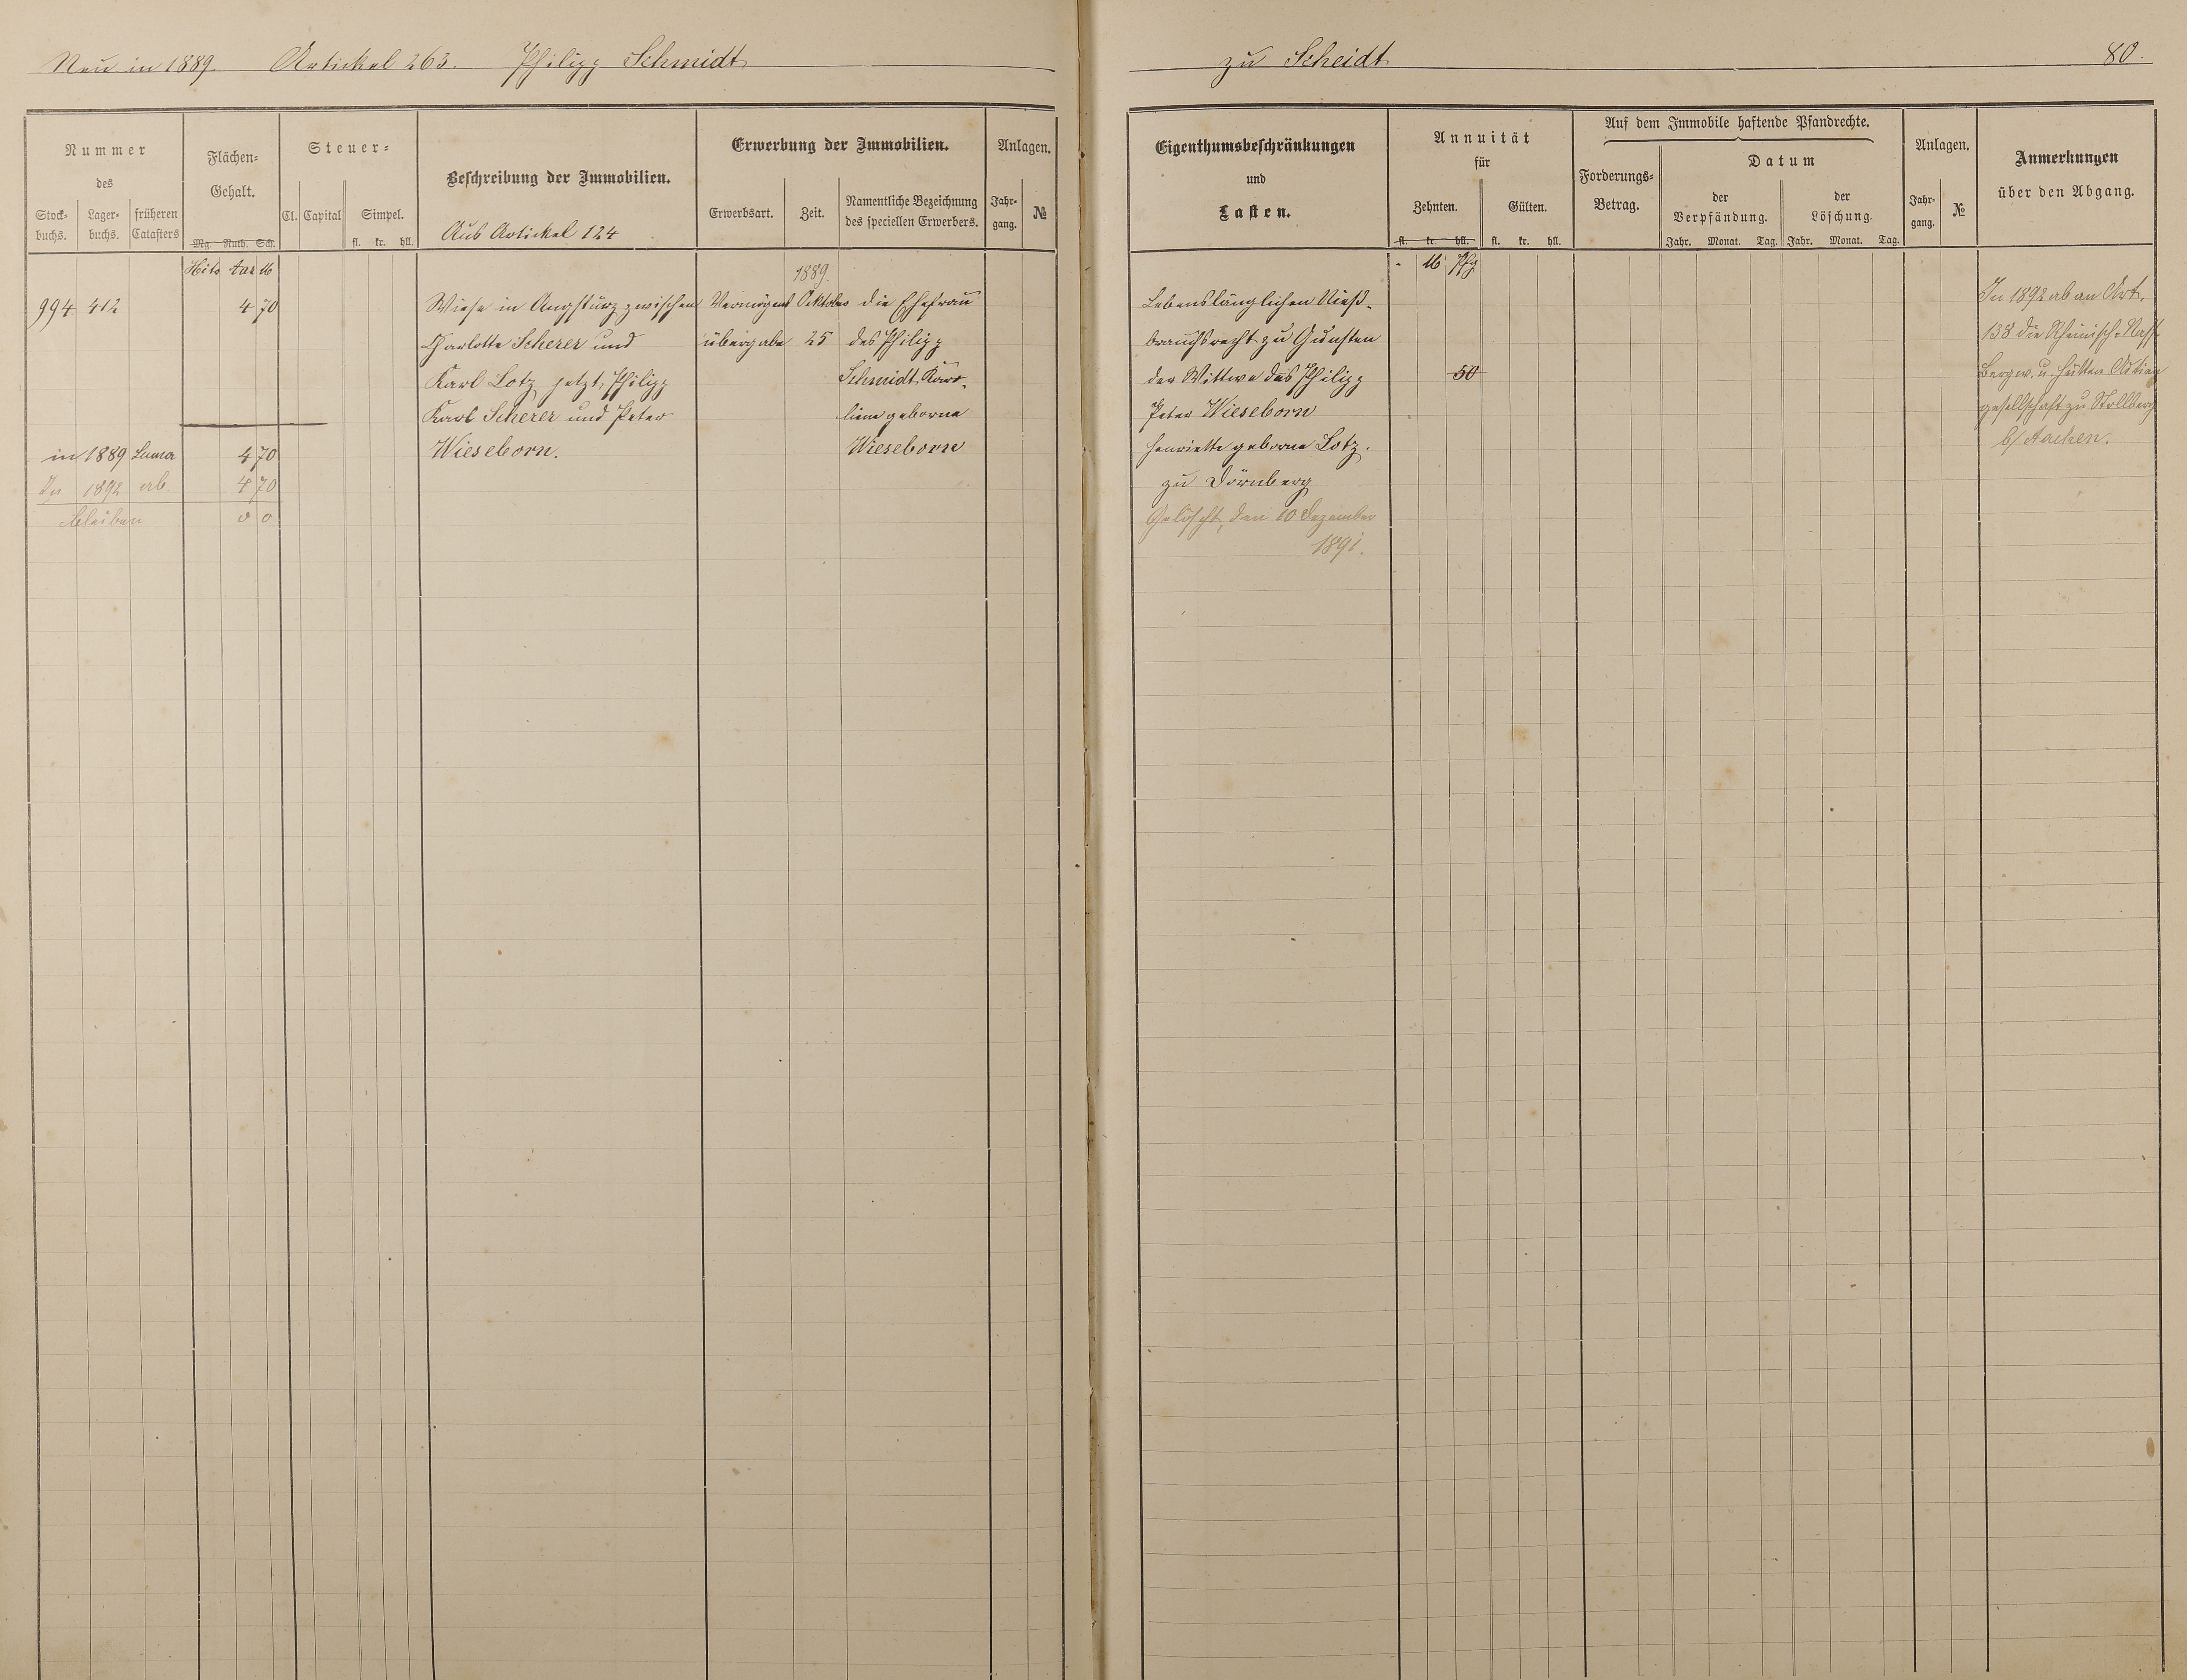 Neu in 1889. Artickel 263. Philipp Schmidt
zu Scheidt 80.
Nummer
des
Stock-
buchs.
Lager-
buchs.
früheren
Catasters
Flächen-
Gehalt.
Mg. Ruth. Sch.
Steuer-
Cl. Capital Simpel.
fl. kr. hll.
Beschreibung der Immobilien.
Aus Artickel 124
Erwerbung der Immobilien.
Erwerbsart. Zeit.
Namentliche Bezeichnung
des speciellen Erwerbers.
Anlagen.
Jahr-
gang.
№
Ar
1889.
994 412 4 70 Wiese in zwischen Vermögens Oktober die Ehefrau
Charlotte Scherer und übergabe 25 des Philipp
Karl Lotz jetzt Philipp Schmidt Karo-
Karl Scherer und Peter line geborne
in 1889 Suma 4 70 Wieseborn. Wieseborn
In 1892 ab. 4 70
bleiben 0 0
Eigenthumsbeschränkungen
und
Lasten.
Annuität
für
Zehnten. Gülten.
fl. kr. hll. fl. kr. hll.
Auf dem Immobile haftende Pfandrechte.
Forderungs-
Betrag.
Datum
der
Verpfändung.
der
Löschung.
Jahr. Monat. Tag. Jahr. Monat. Tag.
Anlagen.
Jahr-
gang.
№
Anmerkungen
über den Abgang.
M Pfg
Lebenslänglichen Nieß-
brauchsrecht zu Gunsten
der Wittwe des Philipp 50
Peter Wieseborn
Henriette geborne Lotz.
zu Dörnberg
Gelöscht, den 10 Dezember
1891.
In 1892 ab an Art.
138 die Rheinisch-Nass
Bergw. u. Hütten Aktien
gesellschaft zu Stollberg
b/ Aachen.